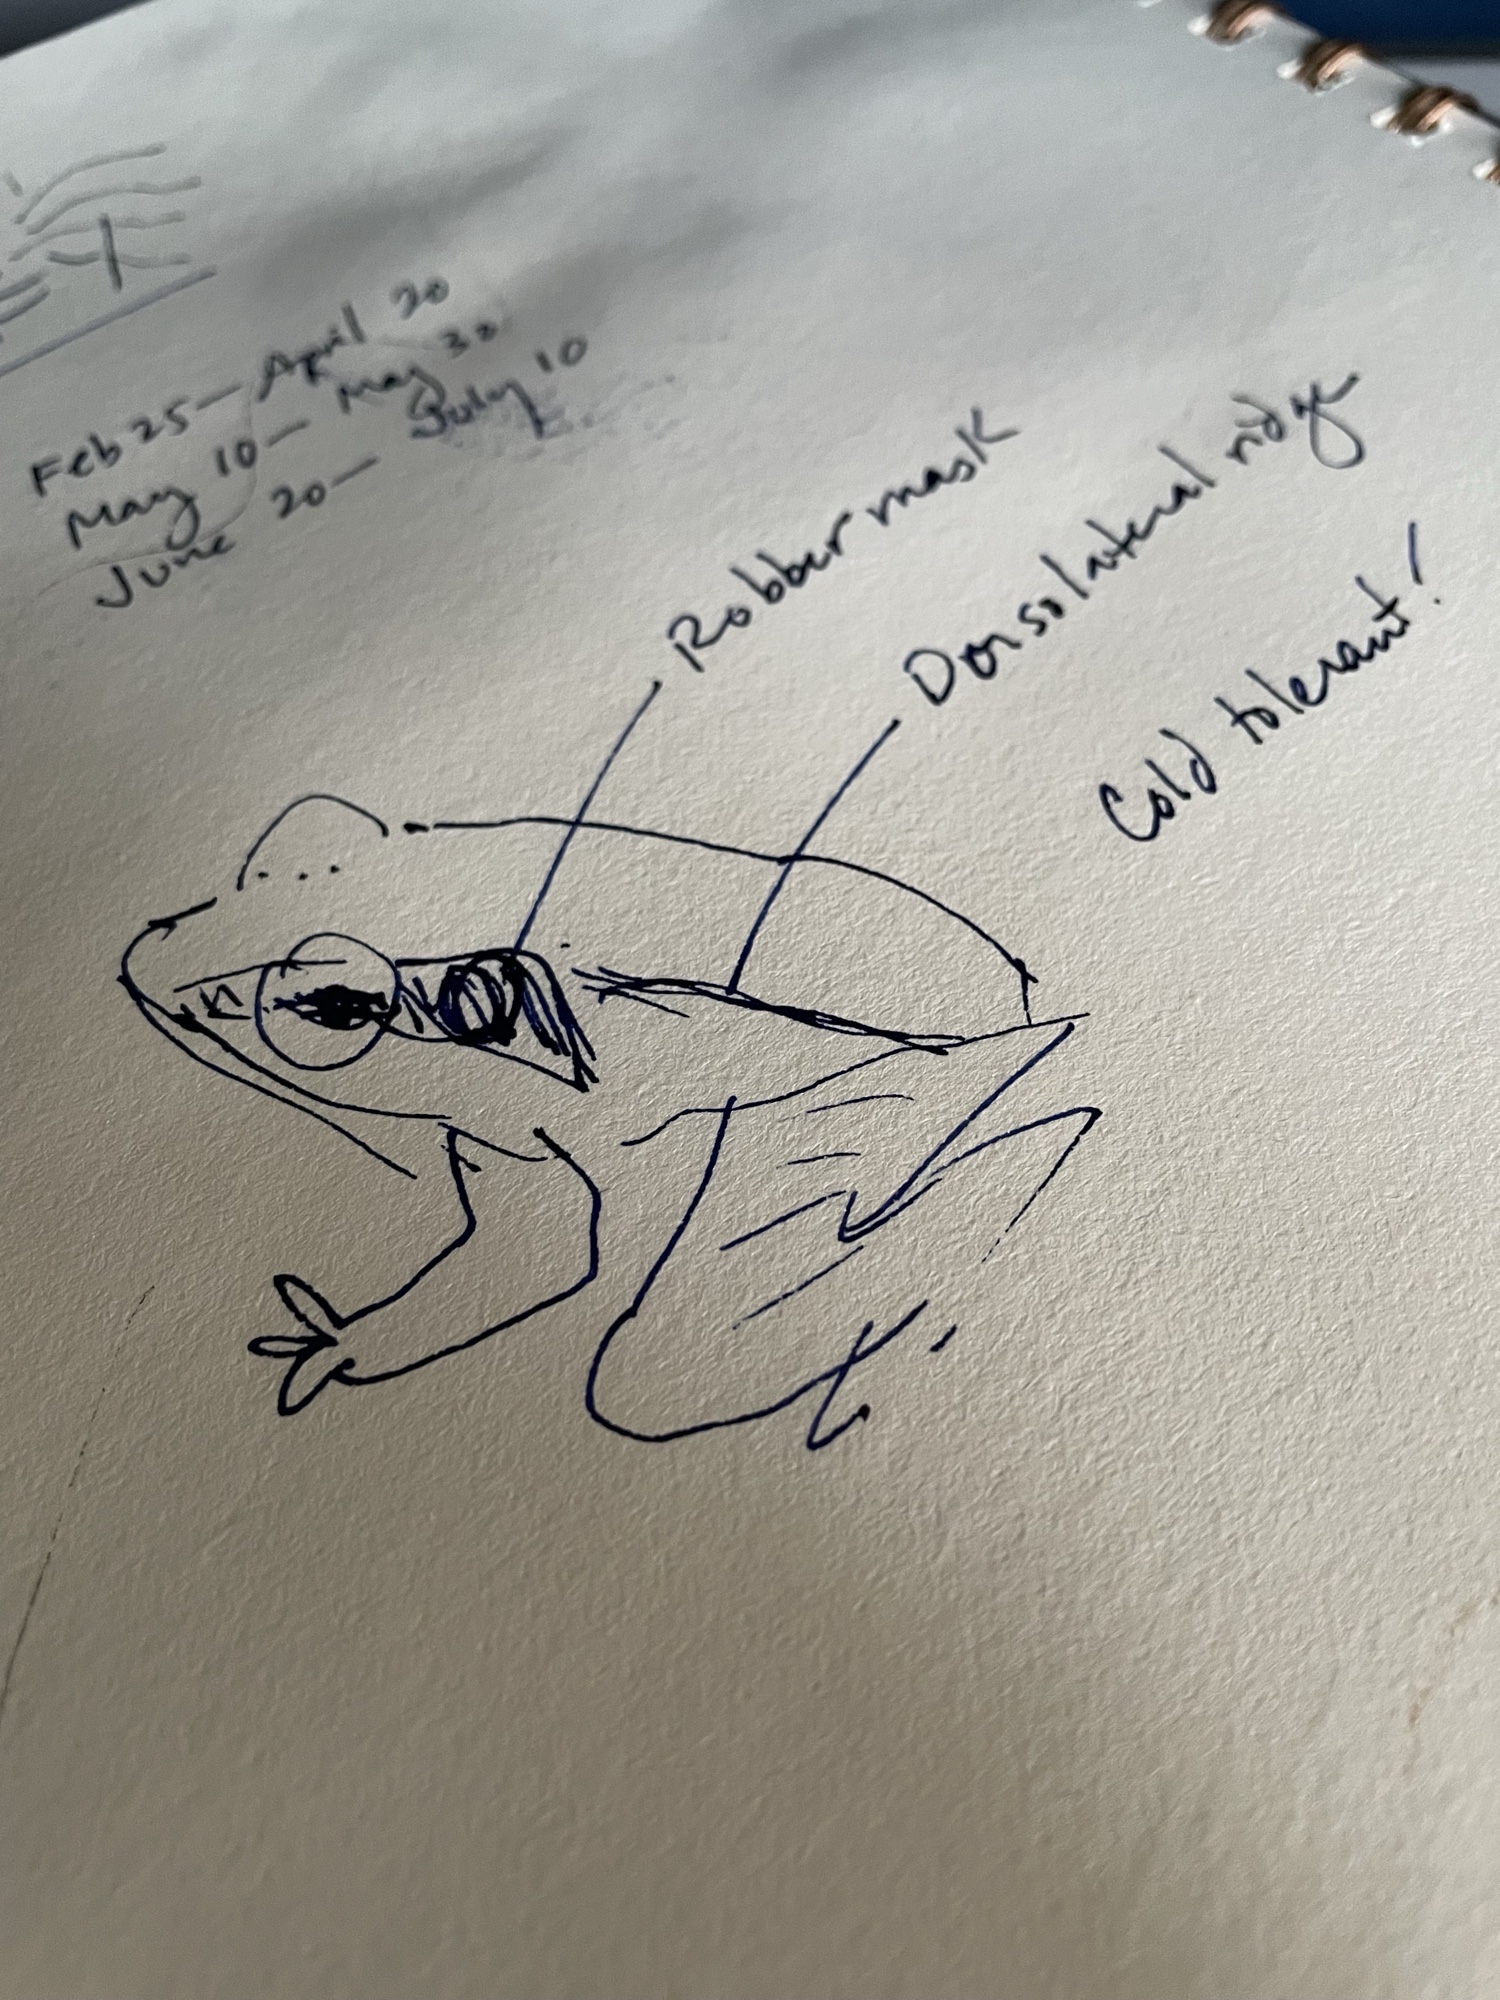 Feb 25 — April 20
May 10 — May 30
June 20 — July 10
Robber mask
Dorsolateral ridge
Cold tolerant!